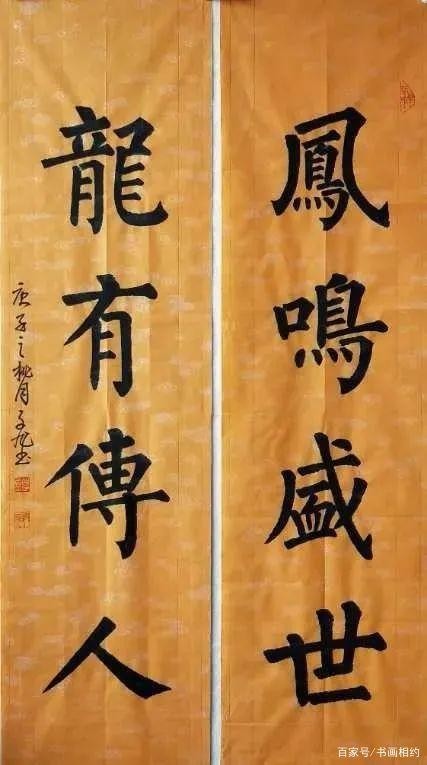 鳳鳴盛世
龍有傳人
庚子之桃月子九书
百家号/书画相约